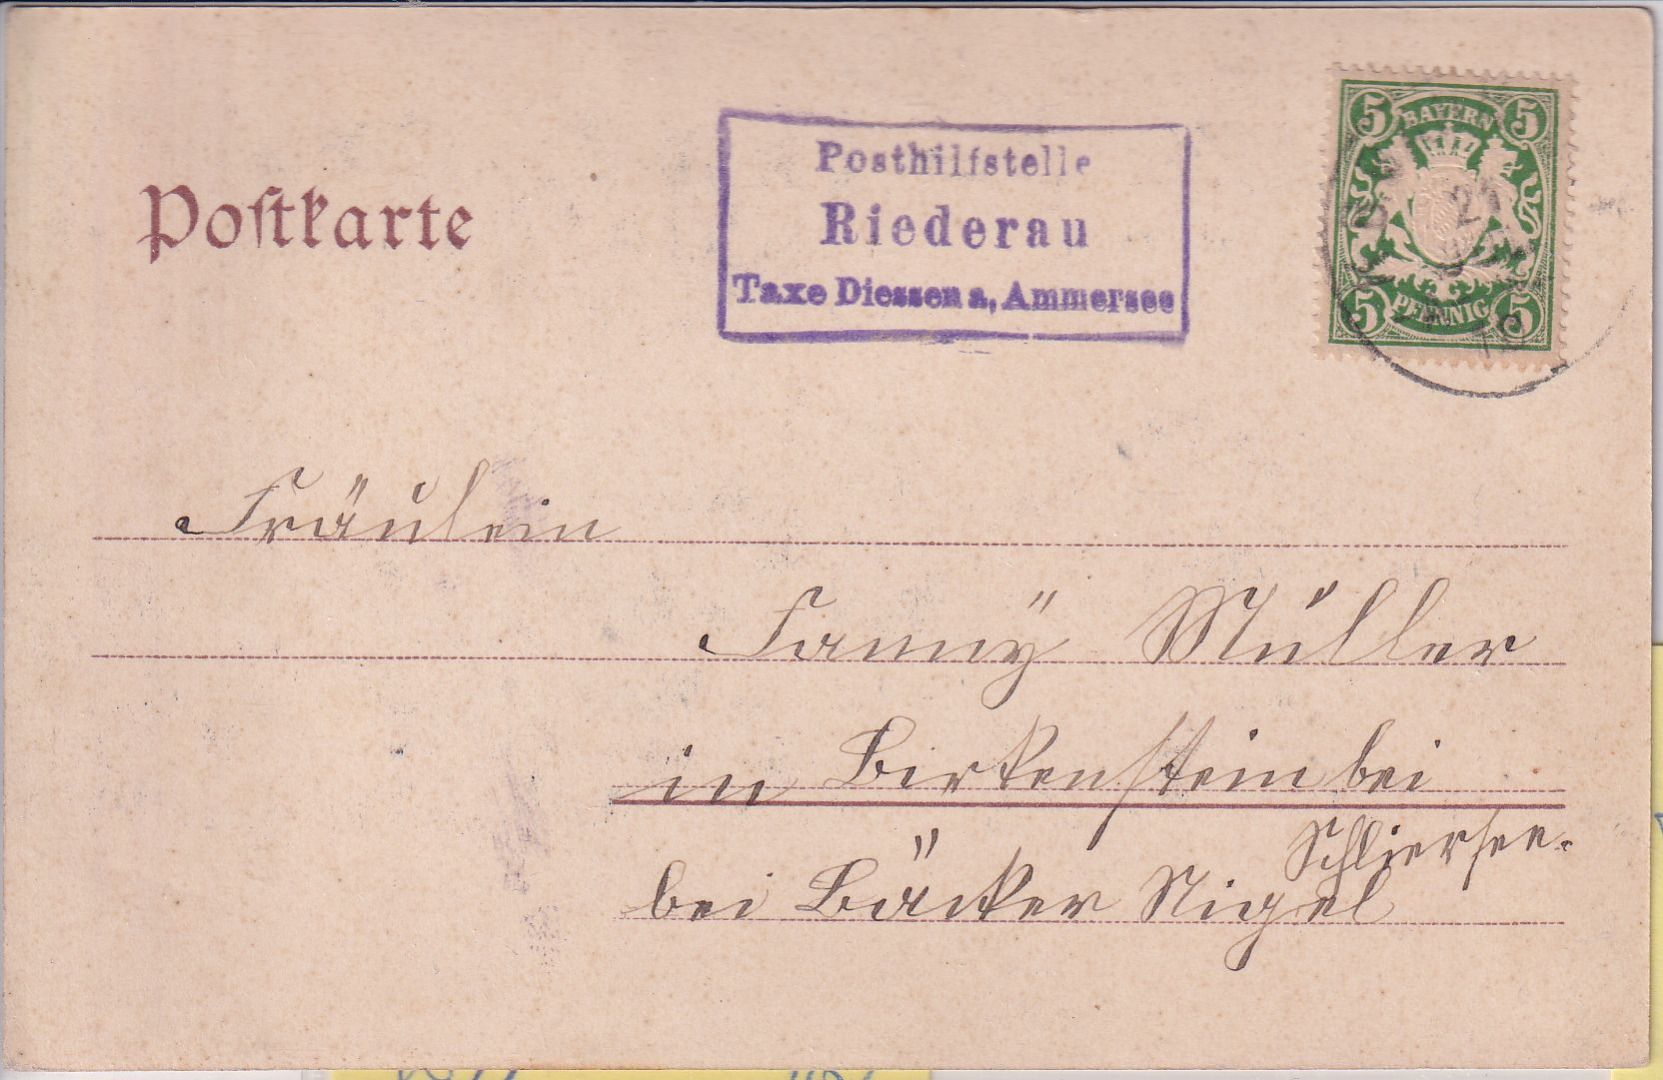 Postkarte
Posthilfstelle
Riederau
Taxe Diessen a, Ammersee
5 BAYERN 5
5 PFENNIG 5
Fräulein
Fanny Müller
in Birkenstein bei
Schliersee.
bei Bäcker Nigel